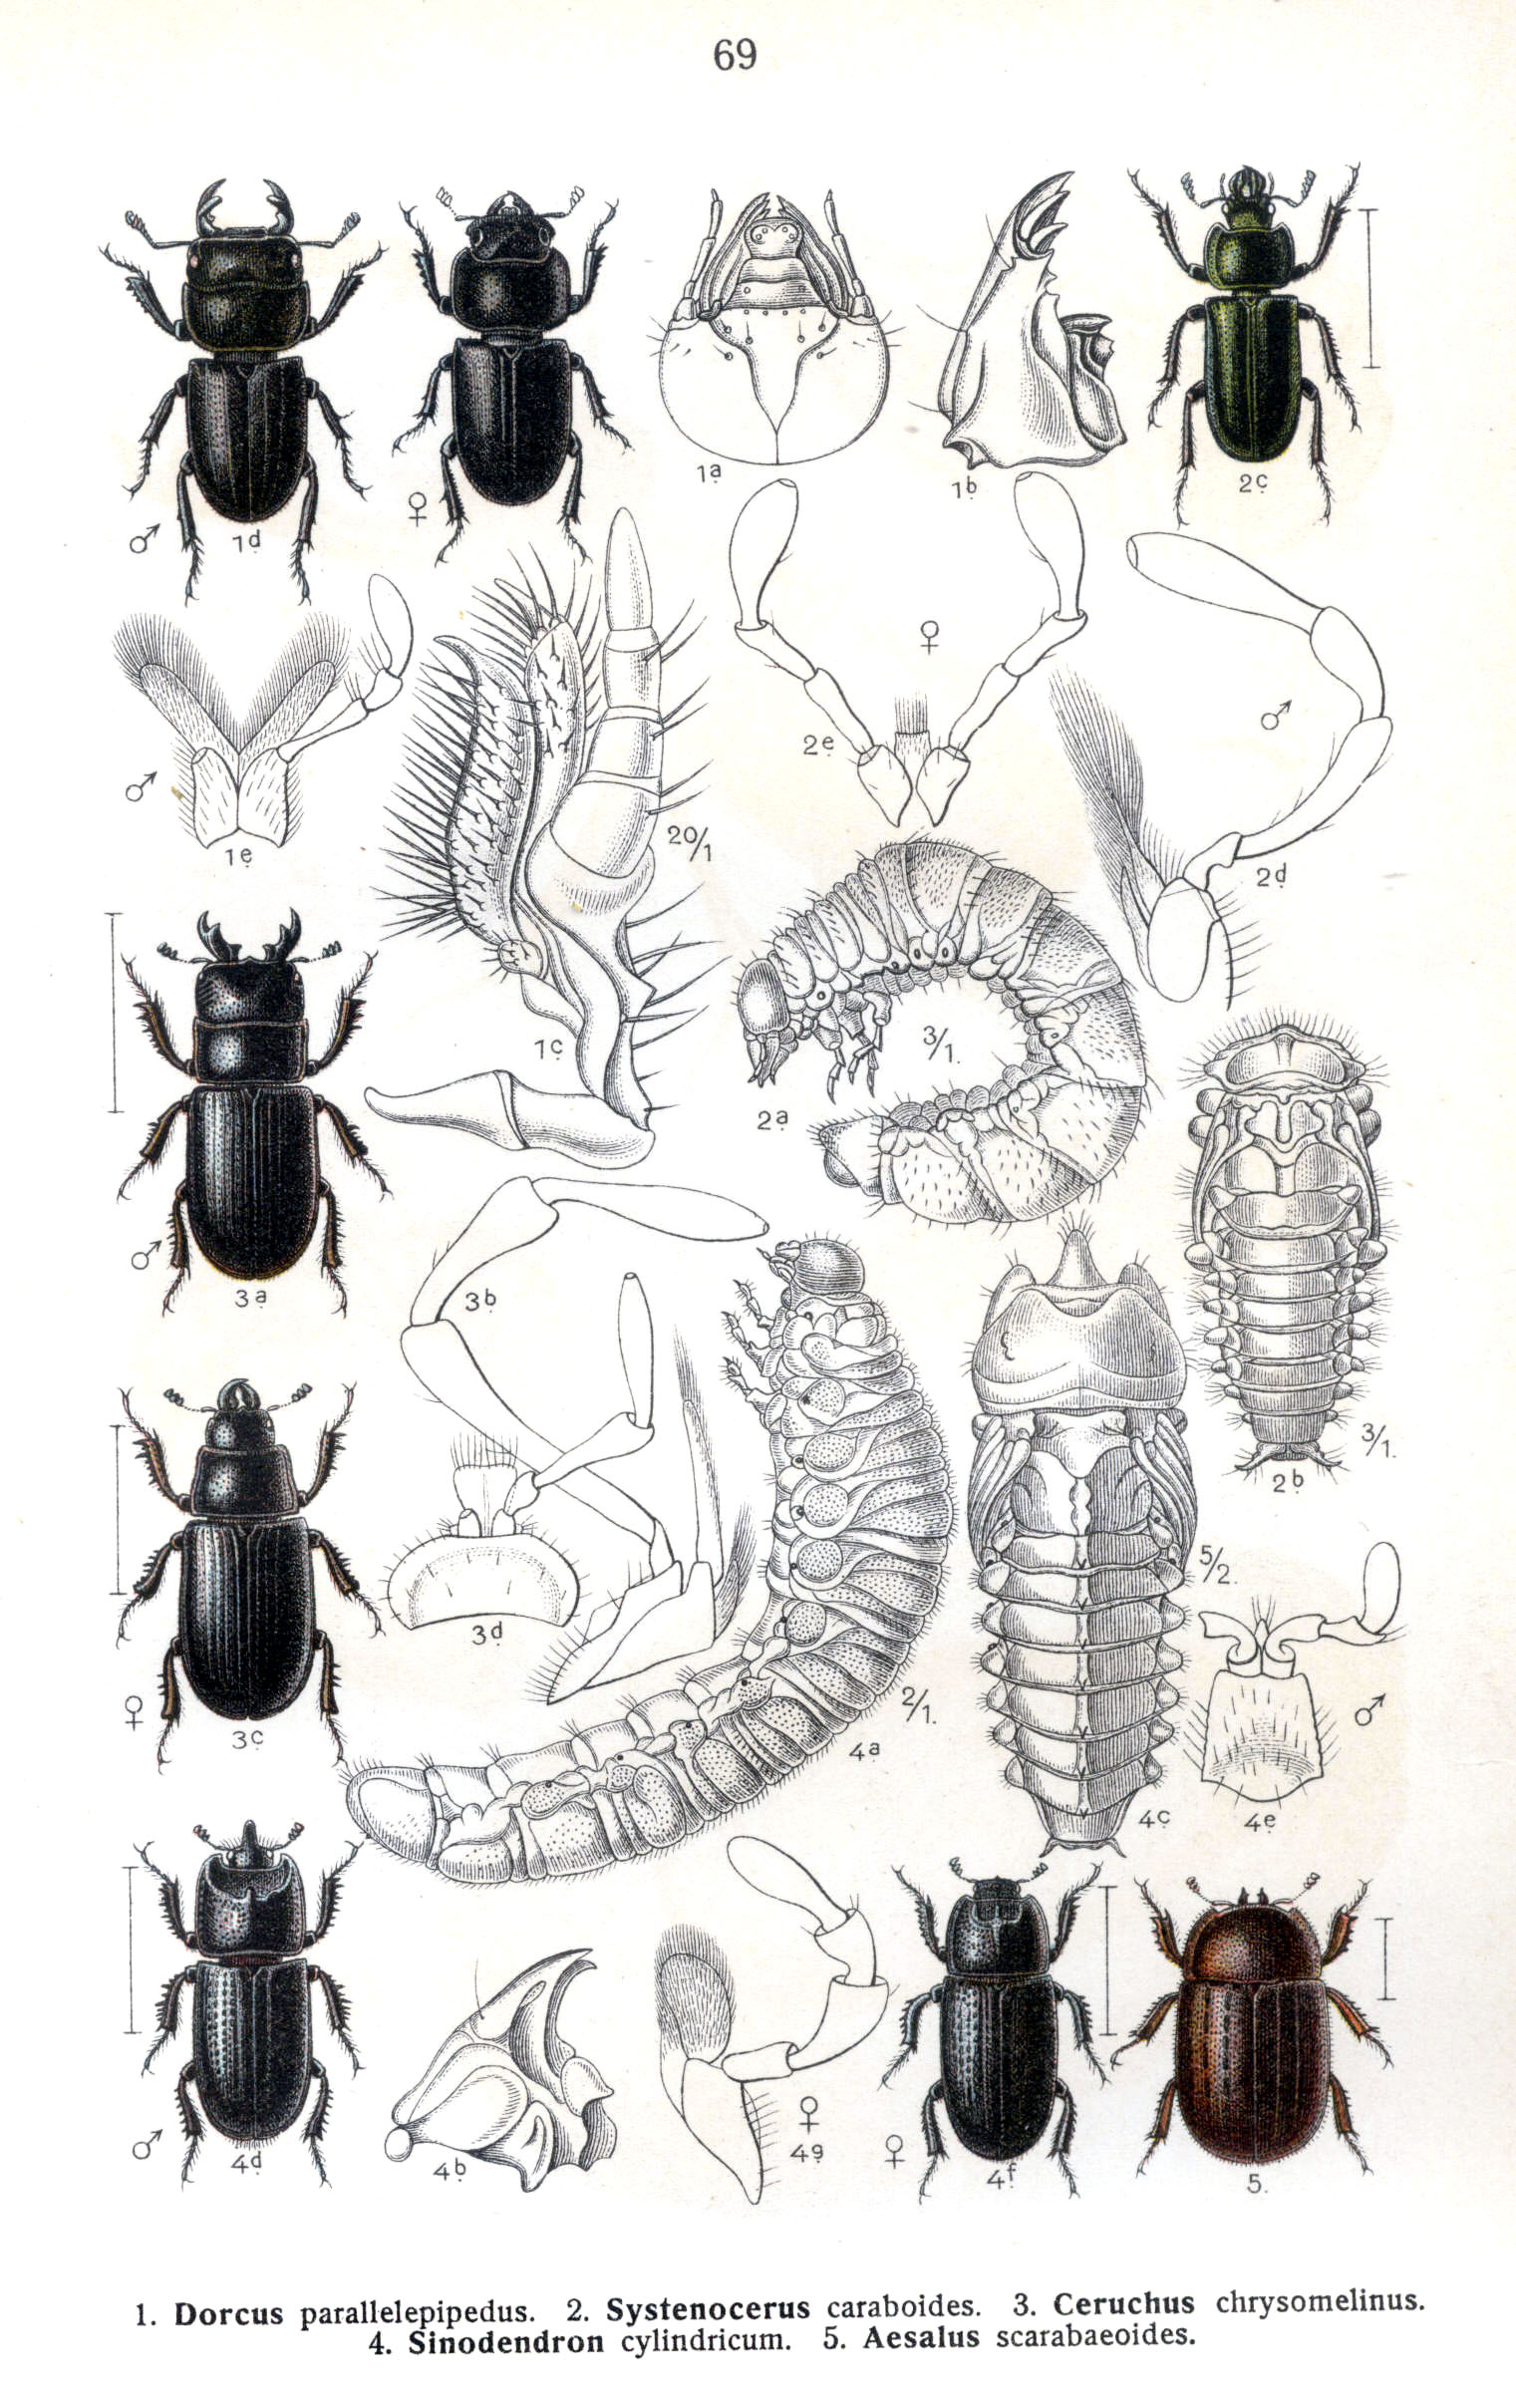 69
1a
1b
2c
♂ 1d
♀
♀
♂
2e
♂
1e
20/1
2d
1c
3/1.
2a
♂
3a
3b
3/1.
2b
5/2.
3d
♂
♀
3c
2/1.
4a
4c
4e
♂
4d
4b
♀
4g
♀
4f
5.
1. Dorcus parallelepipedus. 2. Systenocerus caraboides. 3. Ceruchus chrysomelinus.
4. Sinodendron cylindricum. 5. Aesalus scarabaeoides.